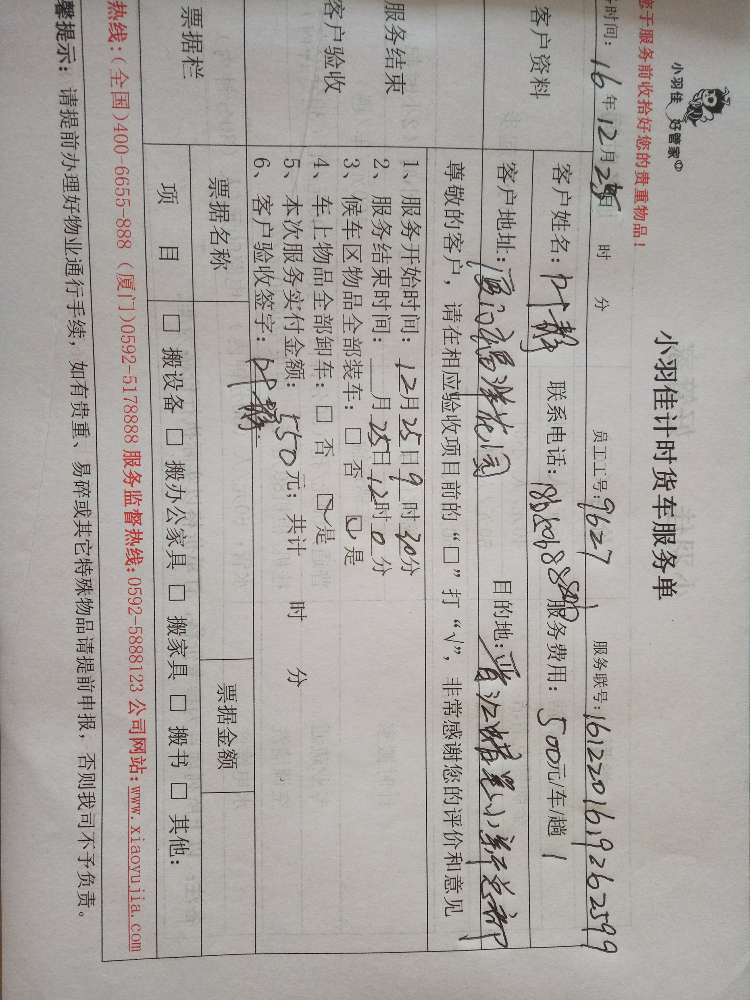 小羽佳 好管家
您于服务前收拾好您的贵重物品！
小羽佳计时货车服务单
时间：16年12月25日 时 分 员工工号：9627 服务联号：1612201619262599
客户资料 客户姓名：叶静 联系电话： 服务费用：500元/车/趟 1
客户地址： 花园 目的地：晋江
尊敬的客户，请在相应验收项目前的“□”打“√”，非常感谢您的评价和意见
服务结束
客户验收
1、服务开始时间：12月25日9时30分
2、服务结束时间：__月25日12时0分
3、候车区物品全部装车：□ 否 ☑ 是
4、车上物品全部卸车：□ 否 ☑ 是
5、本次服务实付金额：550元；共计 时 分
6、客户验收签字：叶静
票据栏 票据名称 票据金额
项 目 □ 搬设备 □ 搬办公家具 □ 搬家具 □ 搬书 □ 其他：
热线：（全国）400-6655-888 （厦门）0592-5178888 服务监督热线：0592-5888123 公司网站：www.xiaoyujia.com
馨提示：请提前办理好物业通行手续，如有贵重、易碎或其它特殊物品请提前申报，否则我司不予负责。